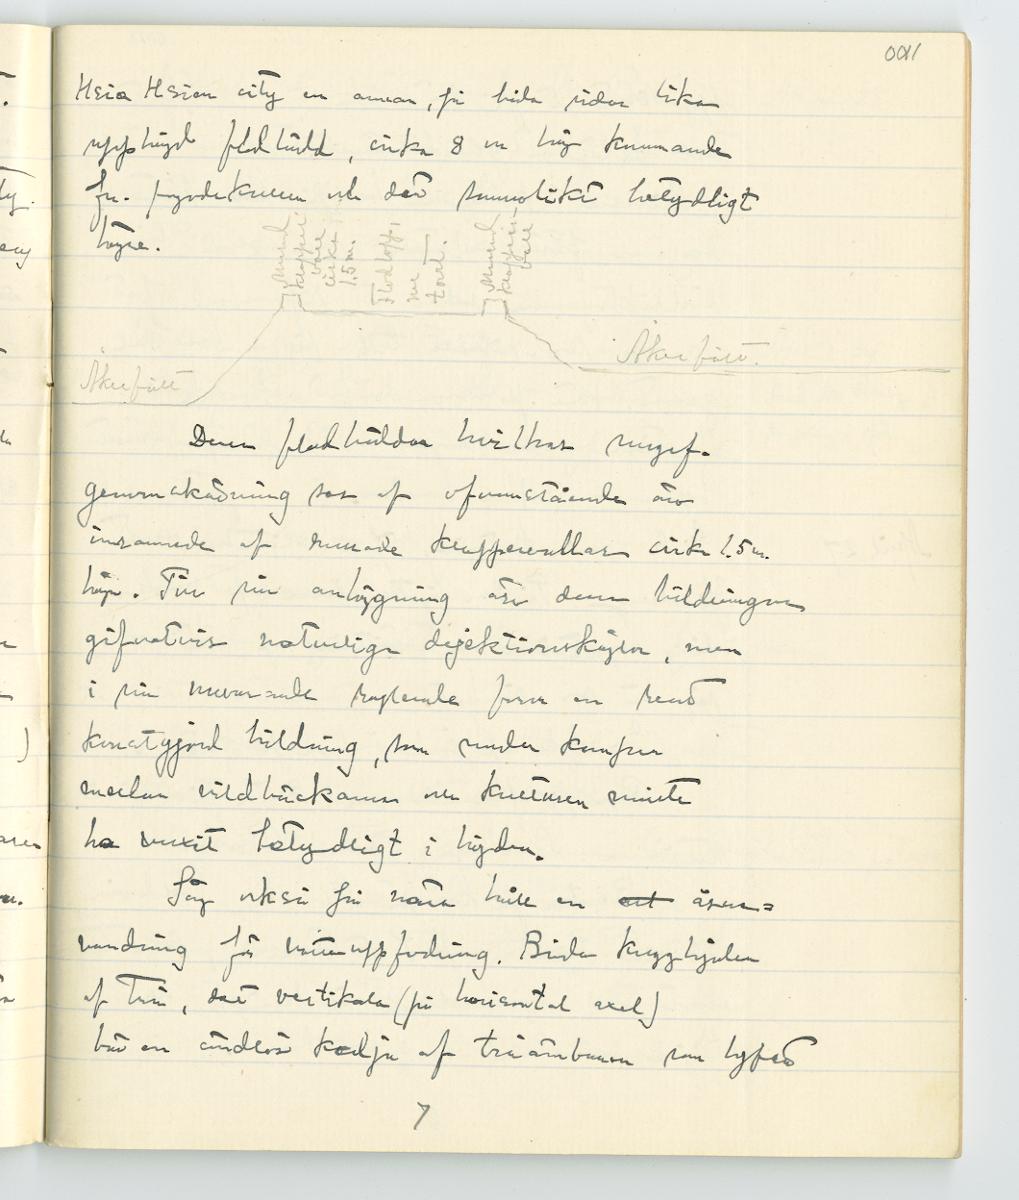 0011
Hsia Hsien city en annan, på båda sidor lika
upphöjd flodbädd, cirka 8 m hög kommande
fr. bergen och det sannolikt betydligt
högre.
Murad
klapper
vall
cirka
1.5 m.
Flodlopp,
nu
torrt.
Murad
klapper-
vall
Åkerfält
Åkerfält.
Dessa flodbäddar hvilkas
genomskärning ses af ofvanstående äro
inramade af murade klappervallar cirka 1.5 m.
höga. Till sin anläggning äro dessa bildningar
gifvetvis naturliga dejektionskäglor, men
i sin nuvarande form en rent
konstgjord bildning, som under kampen
mellan vildbäckarna och kulturen måste
ha vuxit betydligt i höjden.
Såg också på nära håll en åsne-
vandring för vattenuppfodring. Båda kugghjulen
af trä, det vertikala (på horisontal axel)
bär en ändlös kedja af träämbaren som lyfter
7